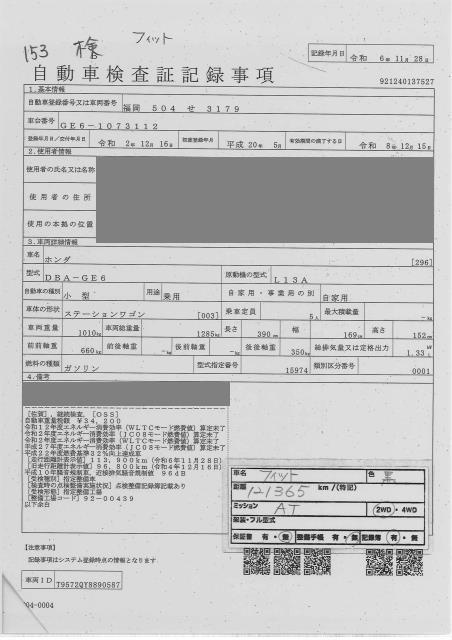 153 檜 フィット
記録年月日 令和 6年 11月 28日
自動車検査証記録事項
921240137527
1.基本情報
自動車登録番号又は車両番号 福岡 504 せ 3179
車台番号 GE6-1073112
登録年月日/交付年月日 令和 2年 12月 16日 初度登録年月 平成 20年 5月 有効期間の満了する日 令和 8年 12月 15日
2.使用者情報
使用者の氏名又は名称
使用者の住所
使用の本拠の位置
3.車両詳細情報
車名 ホンダ [296]
型式 DBA-GE6 原動機の型式 L13A
自動車の種別 小型 用途 乗用 自家用・事業用の別 自家用
車体の形状 ステーションワゴン [003] 乗車定員 5人 最大積載量 -kg
車両重量 1010kg 車両総重量 1285kg 長さ 390cm 幅 169cm 高さ 152cm
前前軸重 660kg 前後軸重 -kg 後前軸重 -kg 後後軸重 350kg 総排気量又は定格出力 1.33L
燃料の種類 ガソリン 型式指定番号 15974 類別区分番号 0001
4.備考
[佐賀],継続検査,[OSS]
自動車重量税額 ¥34,200
令和12年度エネルギー消費効率(WLTCモード燃費値)算定未了
令和2年度エネルギー消費効率(JC08モード燃費値)算定未了
令和2年度エネルギー消費効率(WLTCモード燃費値)算定未了
平成27年度エネルギー消費効率(JC08モード燃費値)算定未了
平成22年度燃費基準32%向上達成車
[走行距離計表示値]113,900km(令和6年11月28日)
[旧走行距離計表示値]96,800km(令和4年12月16日)
平成10年騒音規制車、近接排気騒音規制値 96dB
[受検種別]指定整備車
[検査時の点検整備実施状況]点検整備記録簿記載あり
[受検形態]指定整備工場
[整備工場コード]92-00439
以下余白
車名 フィット 色 黒
距離 121365 km/(特記)
ミッション AT 2WD・4WD
架装・フル型式
保証書 有・無 整備手帳 有・無 記録簿 有・無
[注意事項]
記録事項はシステム登録時点の情報となります。
車両ID T9572QY8890587
904-0004